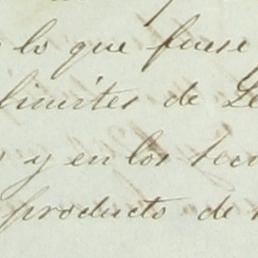 lo que fuese
limites de Le
y en los
producto de